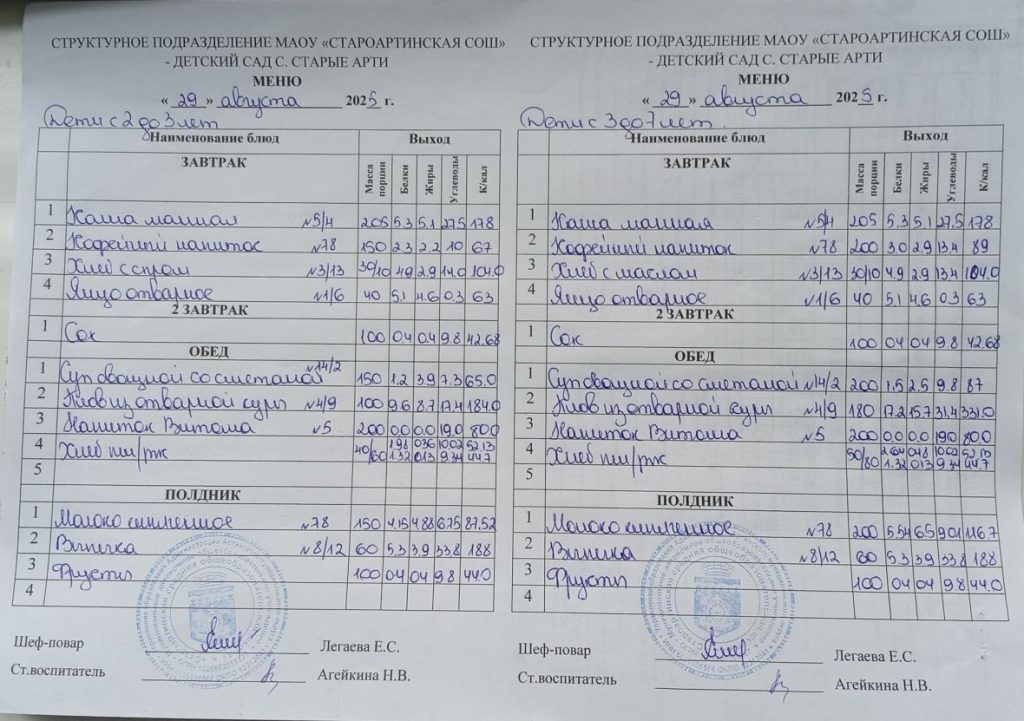 СТРУКТУРНОЕ ПОДРАЗДЕЛЕНИЕ МАОУ «СТАРОАРТИНСКАЯ СОШ»
- ДЕТСКИЙ САД С. СТАРЫЕ АРТИ
МЕНЮ
« 29 » августа 2025 г.
Дети с 2 до 3 лет
Наименование блюд Выход
ЗАВТРАК Масса порции Белки Жиры Углеводы К/кал
1 Каша манная №5/4 205 5.3 5.1 27.5 178
2 Кофейный напиток №78 150 2.3 2.2 10 67
3 Хлеб с сыром №3/13 30/10 4.9 2.9 14.0 104.0
4 Яйцо отварное №1/6 40 5.1 4.6 0.3 63
2 ЗАВТРАК
1 Сок 100 0.4 0.4 9.8 42.68
ОБЕД
1 Суп овощной со сметаной №14/2 150 1.2 3.9 7.3 65.0
2 Плов из отварной куры №4/9 100 9.6 8.7 17.4 184.0
3 Напиток Витоша №5 200 0.0 0.0 19.0 80.0
4 Хлеб пш/рж 40/60 1.98 0.36 10.02 52.13
1.32 0.13 9.34 44.7
5
ПОЛДНИК
1 Молоко кипяченое №78 150 4.15 4.88 6.75 87.52
2 Выпечка №8/12 60 5.3 3.9 33.8 188
3 Фрукты 100 0.4 0.4 9.8 44.0
4
Шеф-повар Легаева Е.С.
Ст.воспитатель Агейкина Н.В.
СТРУКТУРНОЕ ПОДРАЗДЕЛЕНИЕ МАОУ «СТАРОАРТИНСКАЯ СОШ»
- ДЕТСКИЙ САД С. СТАРЫЕ АРТИ
МЕНЮ
« 29 » августа 2025 г.
Дети с 3 до 7 лет.
Наименование блюд Выход
ЗАВТРАК Масса порции Белки Жиры Углеводы К/кал
1 Каша манная №5/4 205 5.3 5.1 27.5 178
2 Кофейный напиток №78 200 3.0 2.9 13.4 89
3 Хлеб с маслом №3/13 30/10 4.9 2.9 13.4 104.0
4 Яйцо отварное №1/6 40 5.1 4.6 0.3 63
2 ЗАВТРАК
1 Сок 100 0.4 0.4 9.8 42.68
ОБЕД
1 Суп овощной со сметаной №14/2 200 1.5 2.5 9.8 87
2 Плов из отварной куры №4/9 180 17.2 15.7 31.4 331.0
3 Напиток Витоша №5 200 0.0 0.0 19.0 80.0
4 Хлеб пш/рж 50/80 2.64 0.48 10.02 52.13
1.32 0.13 9.34 44.7
5
ПОЛДНИК
1 Молоко кипяченое №78 200 5.54 6.5 9.01 116.7
2 Выпечка №8/12 60 5.3 3.9 33.8 188
3 Фрукты 100 0.4 0.4 9.8 44.0
4
Шеф-повар Легаева Е.С.
Ст.воспитатель Агейкина Н.В.